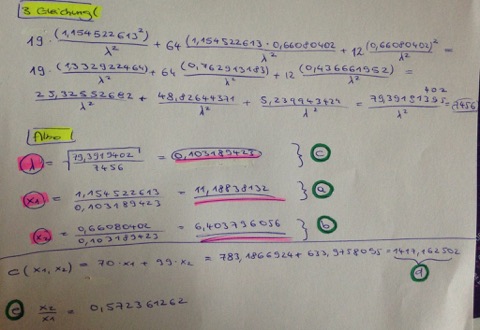 3. Gleichung (
19 · (1,154522613²)/λ² + 64 (1,154522613 · 0,66080402)/λ² + 12 (0,66080402)²/λ² =
19 · (1,332922464)/λ² + 64 (0,762913183)/λ² + 12 (0,436661952)/λ² =
25,32552682/λ² + 48,82644371/λ² + 5,239943424/λ² = /λ² = 7456
Also (
λ = √(79,3919402/7456) = 0,103189423 } c
x1 = 1,154522613/0,103189423 = 11,18838132 } a
x2 = 0,66080402/0,103189423 = 6,403796056 } b
C(x1, x2) = 70 · x1 + 99 · x2 = 783,1866924 + 633,9758095 = 1417,162502
d
e x2/x1 = 0,572361262